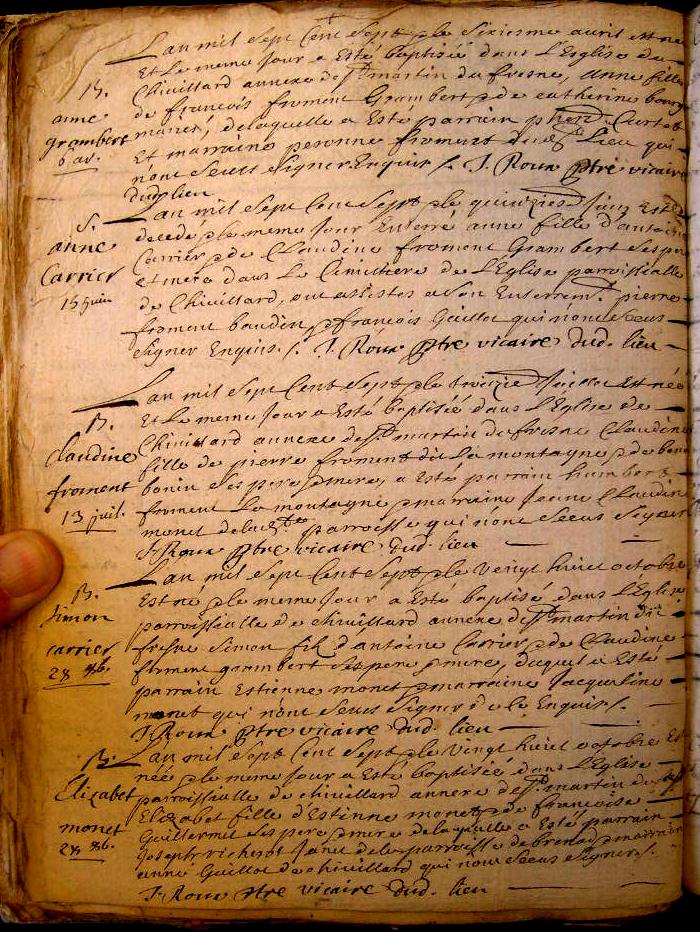 L'an mil sept Cent Sept & le sixiesme avril est née
Et le meme Jour a Esté baptisée dans l'Eglise de
B. Chivillard annexe de St martin du fresne, anne fille
anne de françois froment Grambert & de catherine
grambert delaquelle a Esté parrain
6 av. Et marraine peronne froment dud. Lieu qui
nont sceus signer Enquis /. J. Roux Ptre vicaire
dud. lieu
S. L'an mil sept Cent Sept & le quinzie Juin Est
anne decedé & le meme Jour Enterré anne fille d'antoine
Carrier Carrier & de CLaudine froment Grambert ses pere
15 juin et mere dans Le Cimittiere de L'Eglise parroissialle
de Chivillard, ont assistes a son Enterrem.t pierre
froment baudin & françois Guillot qui nont sceus
signer Enquis /. J. Roux Ptre vicaire dud. lieu
L'an mil sept Cent Sept & le treizie Juillet Est née
B. Et le meme Jour a Esté baptisée dans l'Eglise de
Claudine Chivillard annexe de St martin du fresne Claudine
fille de pierre froment dit La montagne & de
froment bonin ses pere & mere, a Esté parrain humbert
13 juil. froment La montagne & marraine Jeanne Claudine
monet parroisse qui n'ont sceus signer
J. Roux Ptre vicaire dud. lieu
B. L'an mil sept Cent Sept & le Vingt huict octobre
simon Est né & le meme Jour a Esté baptisé dans l'Eglise
parroissialle de chivillard annexe de St martin du
carrier fresne Simon fil d'antoine Carrier & de Claudine
28 8b. froment grambert ses pere & mere, duquel a Esté
parrain Estienne monet & marraine Jacqueline
monet qui n'ont sceus signer de ce Enquis /.
J. Roux Ptre vicaire dud. lieu
B. L'an mil sept Cent Sept & le Vingt huict octobre Est
née & le meme Jour a Esté baptisée dans l'Eglise
Elizabet parroissialle de chivillard annexe de St martin du
Elizabet fille d'Estienne monet & de francoise
monet Guillermet ses pere & mere de laquelle a Esté parrain
28 8b. Joseph de la parroisse de brenod & marraine
anne Guillot de chivillard qui nont sceus signer /.
J. Roux Ptre vicaire dud. lieu